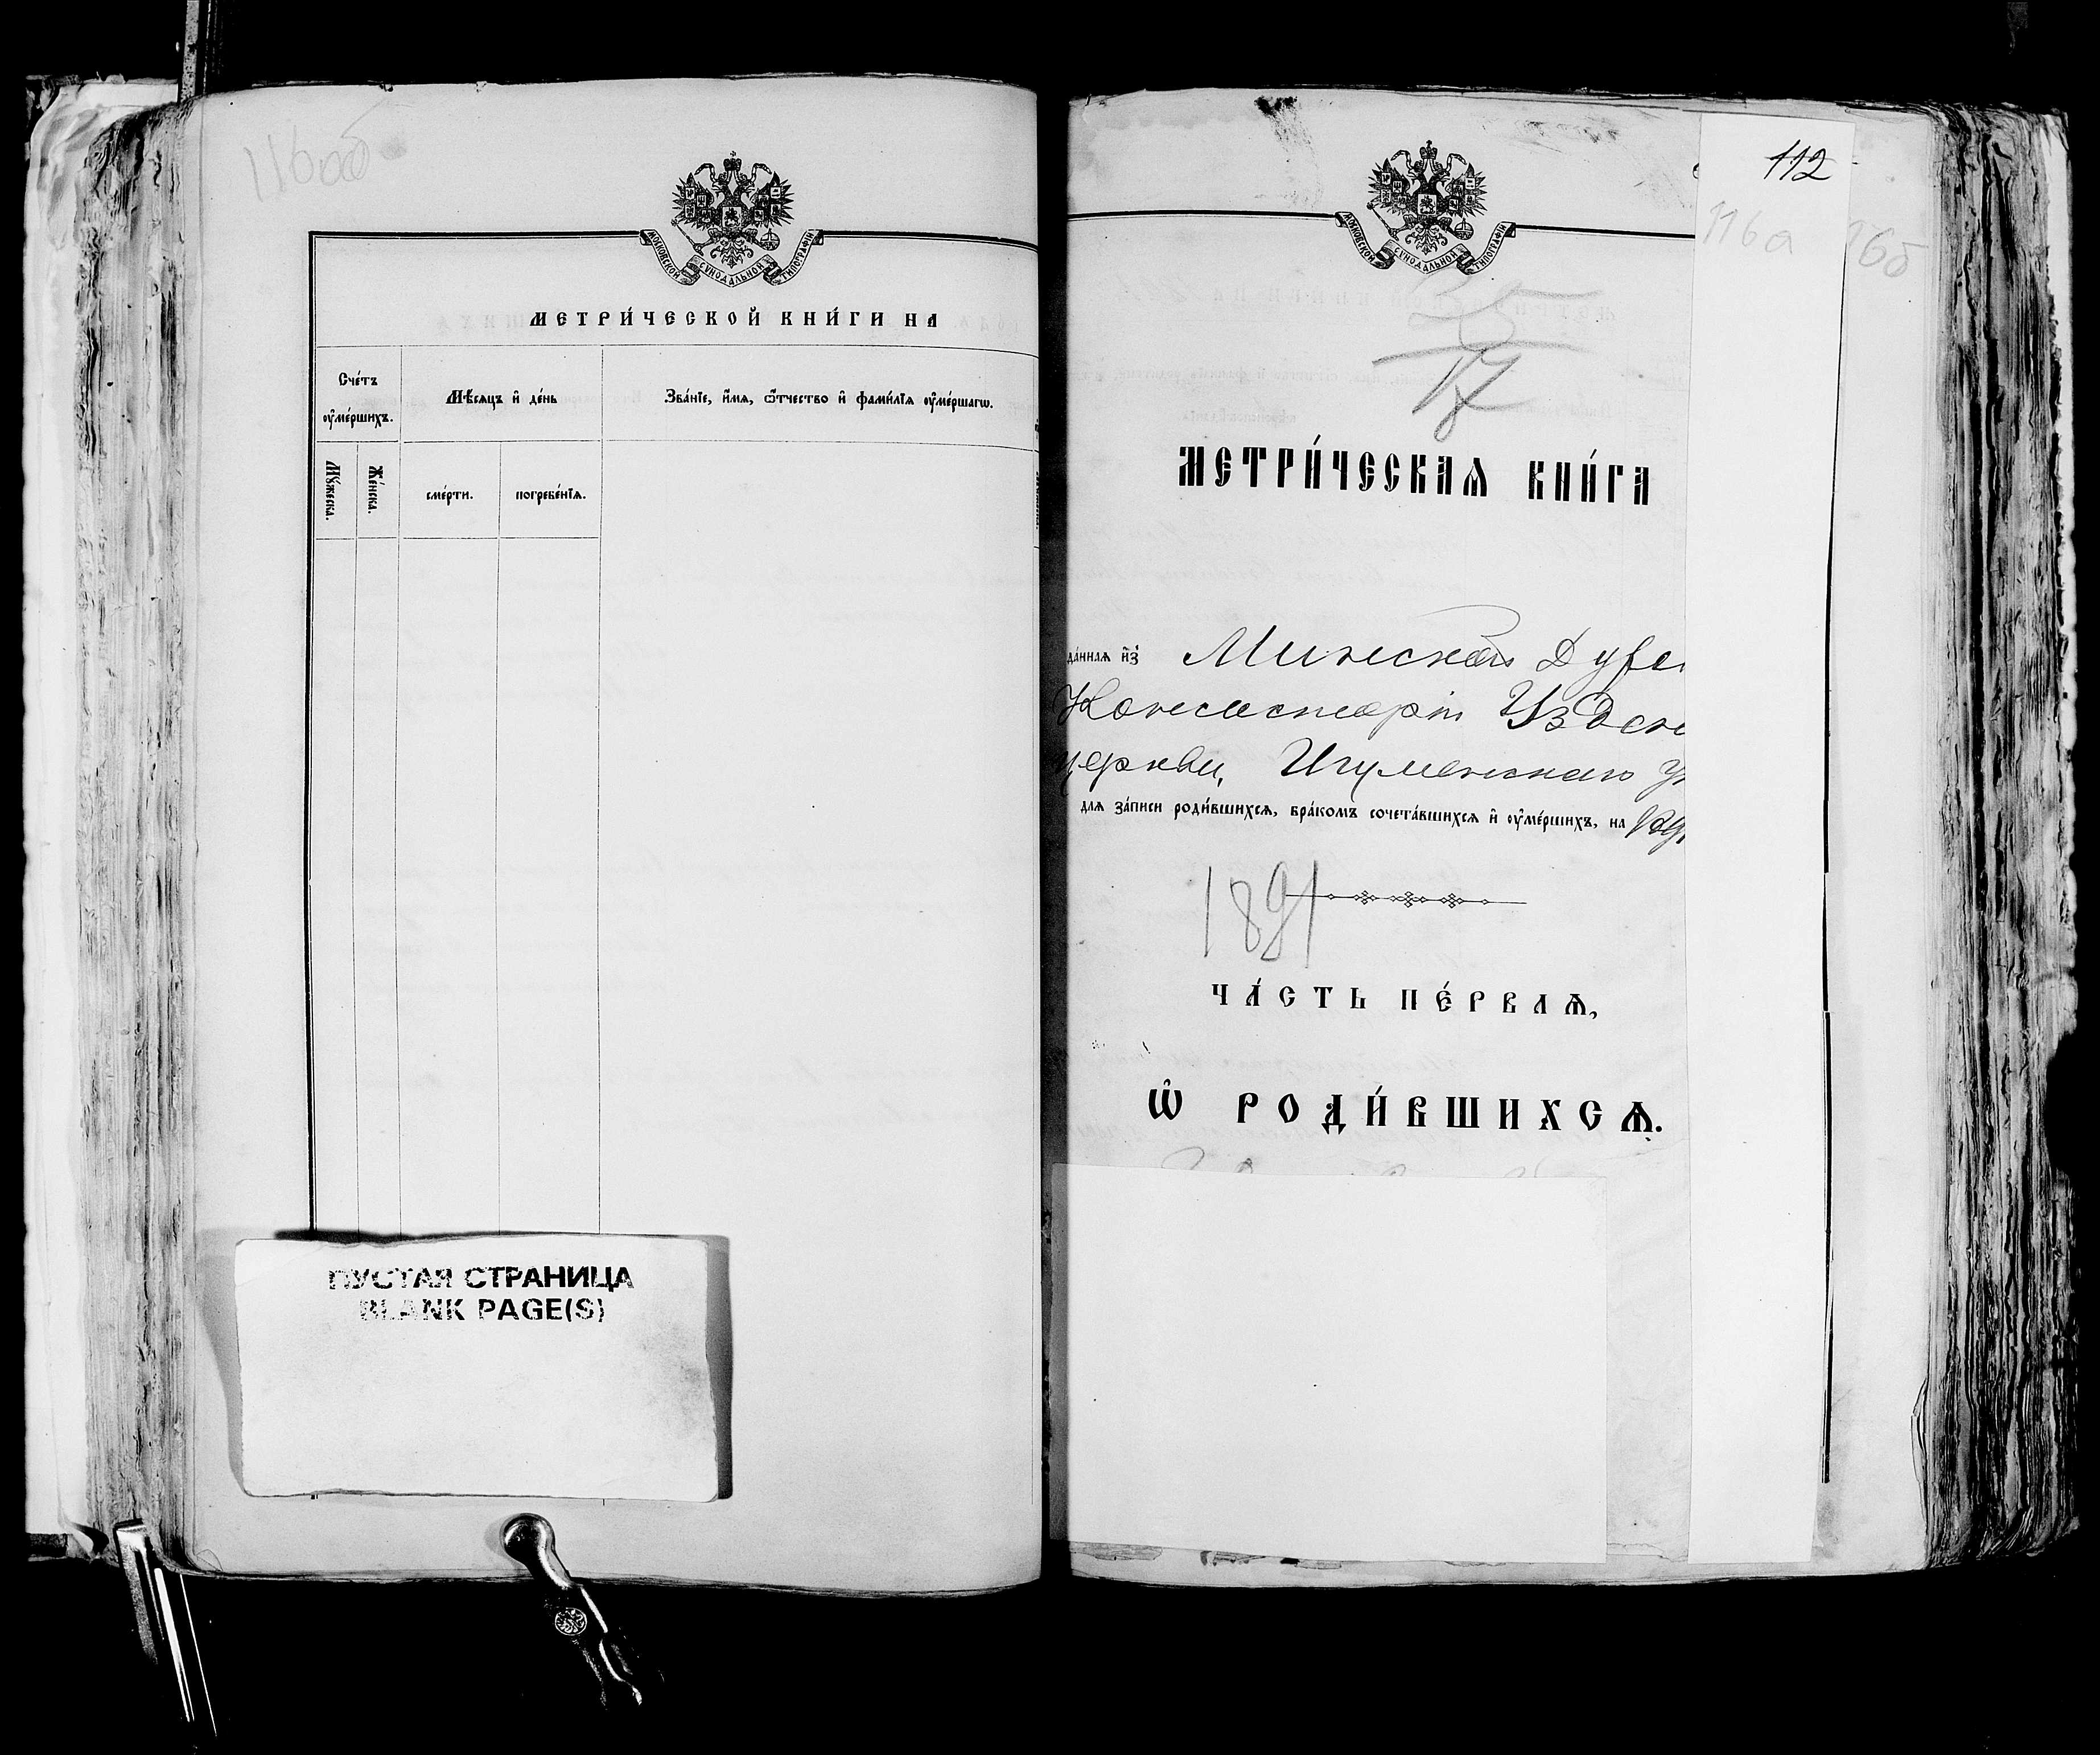 116об
МОСКОВСКОЙ СѴНОДАЛЬНОЙ ТИПОГРАФІИ
МЕТРИ́ЧЕСКОЙ КНИ́ГИ НА
Счéтъ ᲂу҆мéршихъ.
Мѣ́сяцъ и҆ дéнь
Звáнїе, и҆́мѧ, ѻ҆́тчество и҆ фамѝлїѧ ᲂу҆мéршагѡ.
Мꙋ́жеска.
Жéнска.
смéрти.
погребéнїѧ.
ПУСТАЯ СТРАНИЦА
BLANK PAGE(S)
112
116а
16б
МОСКОВСКОЙ СѴНОДАЛЬНОЙ ТИПОГРАФІИ
25
17
МЕТРИ́ЧЕСКАѦ КНИ́ГА
дáннаѧ и҆з̾ Минской Духо
Консисторіи Узденс
церкви, Игуменскаго у
длѧ зáписи роди́вшихсѧ, брáкомъ сочетáвшихсѧ и҆ ᲂу҆мéршихъ, на 189
1891
ЧÁСТЬ ПÉРВАѦ,
Ѡ҆ РОДИ́ВШИХСѦ.